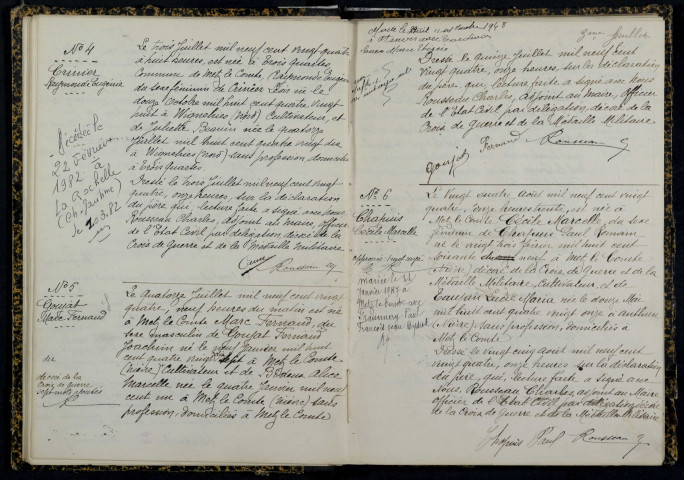 N° 4
Crinier
Raymonde Eugénie
Décédée le
22 Février
1982 à
La Rochelle
(Ch. Maritime)
le 2.3.82
Le trois Juillet mil neuf cent vingt quatre
à huit heures, est née à Trois Quartes,
Commune de Metz le Comte, Raymonde Eugénie
du sexe féminin de Crinier Léon né le
douze Octobre mil huit cent quatre vingt
à Wignehies (Nord) Cultivateur, et
de Juliette née le quatorze
Juillet mil huit cent quatre vingt dix
à Wignehies (Nord) sans profession, domiciliés
à Trois Quartes.
Dressé le trois Juillet mil neuf cent vingt
quatre, onze heures, sur la déclaration
du père qui, lecture faite a signé avec nous
Rousseau Charles, Adjoint au Maire, Officier
de l'Etat Civil par délégation, décoré de la
Croix de Guerre et de la Médaille Militaire
Rousseau
N° 5
Goujat
Marc Fernand
du
décoré de la
Croix de guerre
sept mots ajoutés
Le quatorze Juillet mil neuf cent vingt
quatre, neuf heures du matin est né
à Metz le Comte Marc Fernand, du
sexe masculin de Goujat Fernand
Joachim né le Janvier mil huit
cent quatre vingt sept à Metz le Comte
(Nièvre) Cultivateur et de Alice
Marcelle née le quatre Janvier mil neuf
cent un à Metz le Comte (Nièvre) sans
profession, domiciliés à Metz le Comte
Marié le 1948
à avec
Marie Thérèse
Dressé le quinze Juillet mil neuf cent
vingt quatre, onze heures, sur la déclaration
du père qui, lecture faite a signé avec Nous
Rousseau Charles, Adjoint au Maire, Officier
de l'Etat Civil par délégation, décoré de la
Croix de Guerre et de la Médaille Militaire.
Goujat Fernand Rousseau
N° 6
Chapuis
Cécile Marcelle
mariée le
1945 à
Metz le Comte avec
Paul
François
Le vingt quatre août mil neuf cent vingt
quatre, onze heures trente, est née à
Metz le Comte Cécile Marcelle du sexe
féminin de Chapuis Paul Romain
né le vingt trois février mil huit cent
soixante neuf à Metz le Comte
(Nièvre) décoré de la Croix de Guerre et de la
Médaille Militaire, Cultivateur, et de
Lucie Maria née le douze Mai
mil huit cent quatre vingt onze à
(Nièvre) sans profession, domiciliés à
Metz le Comte
Dressé le vingt cinq août mil neuf cent
vingt quatre, onze heures sur la déclaration
du père qui, lecture faite, a signé avec
Nous, Rousseau Charles, adjoint au Maire
officier de l'Etat Civil, par délégation, décoré
de la Croix de Guerre et de la Médaille Militaire
Chapuis Paul Rousseau